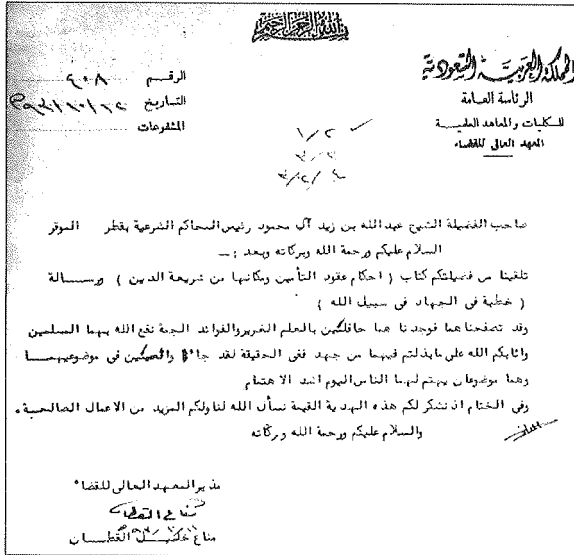 بسم الله الرحمن الرحيم
المملكة العربية السعودية
الرئاسة العامة
للكليات والمعاهد العلمية
المعهد العالي للقضاء
الرقم ٤٠٨
التاريخ
المشفوعات
١/٢
٣/٣
صاحب الفضيلة الشيخ عبد الله بن زيد آل محمود رئيس المحاكم الشرعية بقطر الموقر
السلام عليكم ورحمة الله وبركاته وبعد :ــ
تلقينا من فضيلتكم كتاب ( احكام عقود التأمين ومكانها من شريعة الدين ) ورسالة
( خطبة في الجهاد في سبيل الله )
وقد تصفحناهما فوجدناهما حافلتين بالعلم الغزير والفوائد الجمة نفع الله بهما المسلمين
واثابكم الله على مابذلتم فيهما من جهد ففي الحقيقة لقد في موضوعيهما
وهما موضوعان يهتم لهما الناس اليوم اشد الاهتمام
وفي الختام اذ نشكر لكم هذه الهدية القيمة نسأل الله لنا ولكم المزيد من الاعمال الصالحة .
والسلام عليكم ورحمة الله وبركاته
مدير المعهد العالي للقضاء
مناع خليل القطان